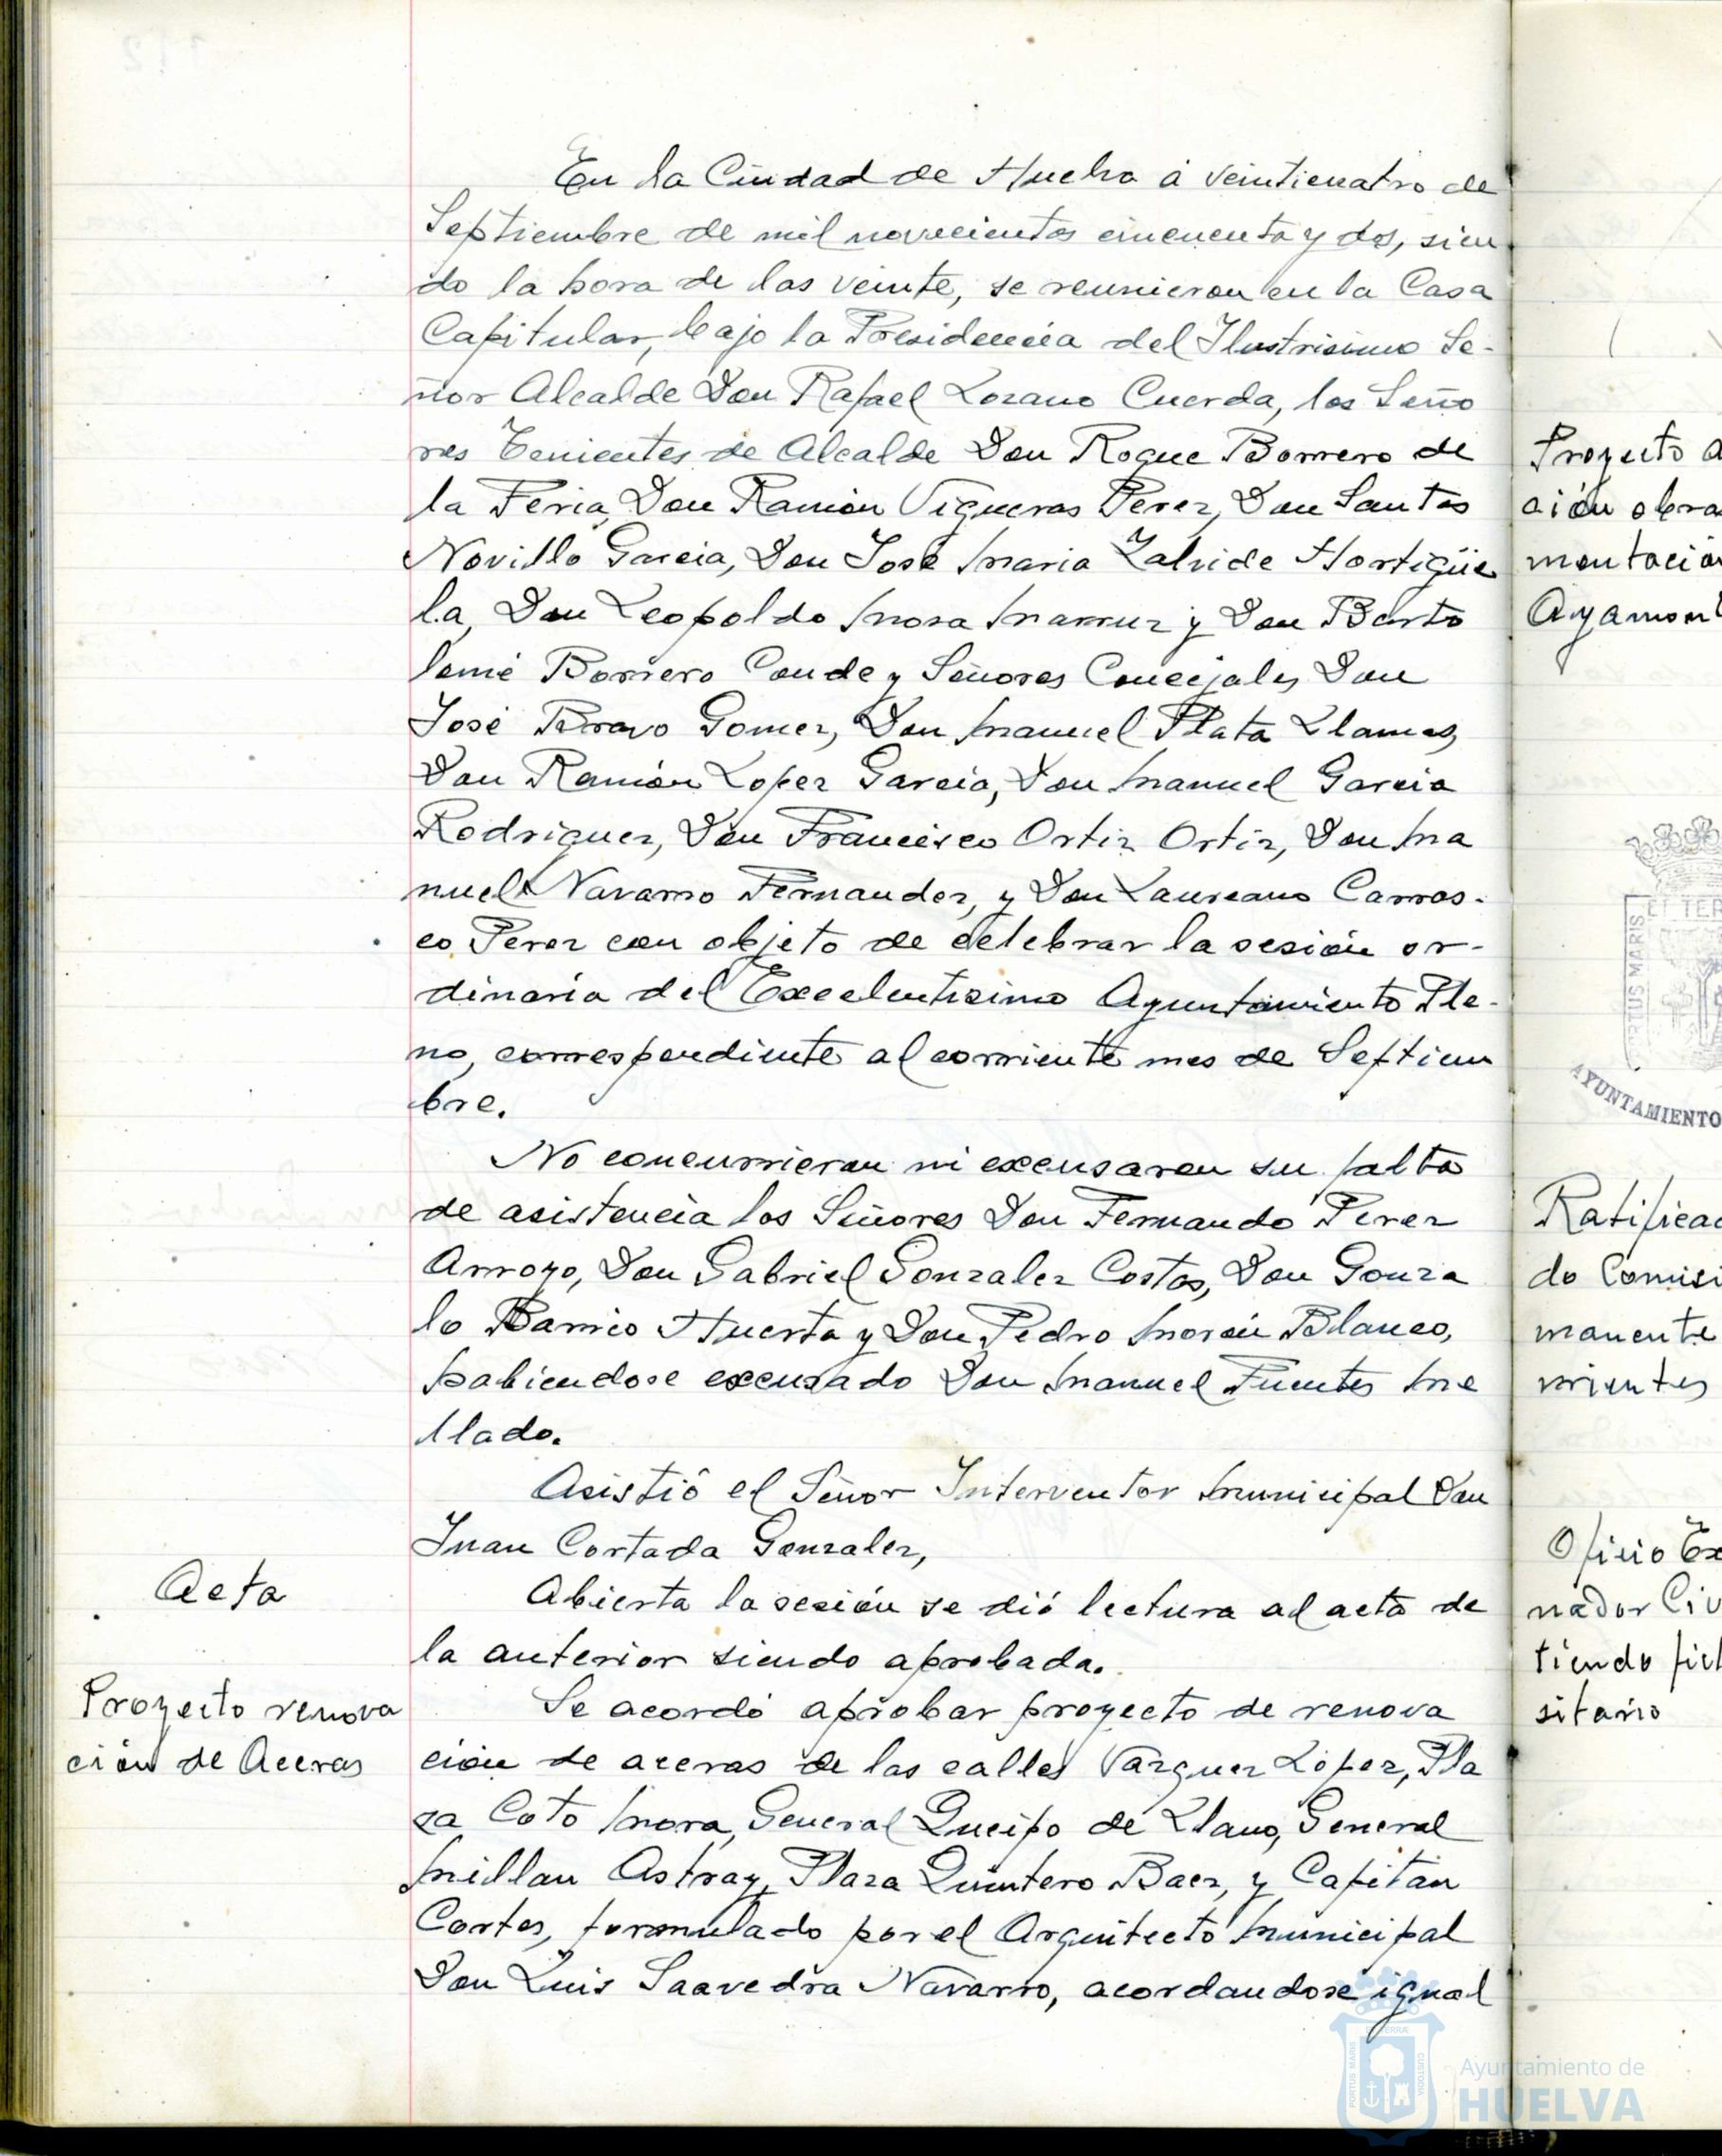 En la Ciudad de Huelva á veinticuatro de
Septiembre de mil novecientos cincuenta y dos, sien
do la hora de las veinte, se reunieron en la Casa
Capitular, bajo la Presidencia del Ilustrisimo Se-
ñor Alcalde Don Rafael Lozano Cuerda, los Seño
res Tenientes de Alcalde Don Roque Borrero de
la Feria, Don Ramón Vigueras Perez, Don Santos
Novillo Garcia, Don José Maria Zalvide Hortigüe
la, Don Leopoldo Mora Marruz y Don Barto
lomé Borrero Conde y Señores Concejales Don
José Bravo Gomez, Don Manuel Plata Llamas,
Don Ramón Lopez Garcia, Don Manuel Garcia
Rodriguez, Don Francisco Ortiz Ortiz, Don Ma
nuel Navarro Fernandez, y Don Laureano Carras-
co Perez con objeto de celebrar la sesión or-
dinaria del Excelentisimo Ayuntamiento Ple-
no, correspondiente al corriente mes de Septiem
bre.
No concurrieron ni excusaron su falta
de asistencia los Señores Don Fernando Perez
Arroyo, Don Gabriel Gonzalez Costas, Don Gonza
lo Barrio Huerta y Don Pedro Morón Blanco,
habiendose excusado Don Manuel Fuentes Me
llado.
Asistió el Señor Interventor Municipal Don
Juan Cortada Gonzalez,
Acta
Abierta la sesión se dió lectura al acta de
la anterior siendo aprobada.
Proyecto renova
ción de Aceras
Se acordó aprobar proyecto de renova
ción de aceras de las calles Vazquez López, Pla
za Coto Mora, General Queipo de Llano, General
Millan Astray, Plaza Quintero Baez, y Capitan
Cortes, formulado por el Arquitecto Municipal
Don Luis Saavedra Navarro, acordandose igual
Proyecto a
ción obra
mentación
Ayamont
PORTUS MARIS ET TER
AYUNTAMIENTO
Ratificac
do Comisi
manente
rrientes
Oficio Ex
nador Civ
tiendo fiel
sitario
Ayuntamiento de
HUELVA